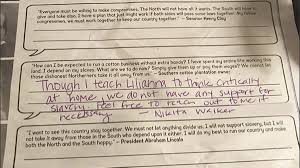 "Everyone must be willing to make compromises. The North will not have all it wants. The South will have to
give and take also. I have a plan that just might work if both sides will pass some laws together. My fellow
congressmen, we must work together to keep our country together." — Senator Henry Clay
"How can I be expected to run a cotton business without extra hands? I have spent my entire life working this
land. I depend on my slaves. What are we to do now? Simply give them up or pay them wages? We cannot let
those dishonest Northerners take it all away from us." - Southern cotton plantation owner
Though I teach Lilianna to think critically
at home, we do not have any support for
slavery. Feel free to reach out to me if
necessary - Nikita Walker
"I want to see this country stay together. We must not let anything divide us. I will not support slavery, but I will
not take it away from those in the South who depend upon it either. I will do my best to run our country and make
both the North and the South happy." - President Abraham Lincoln